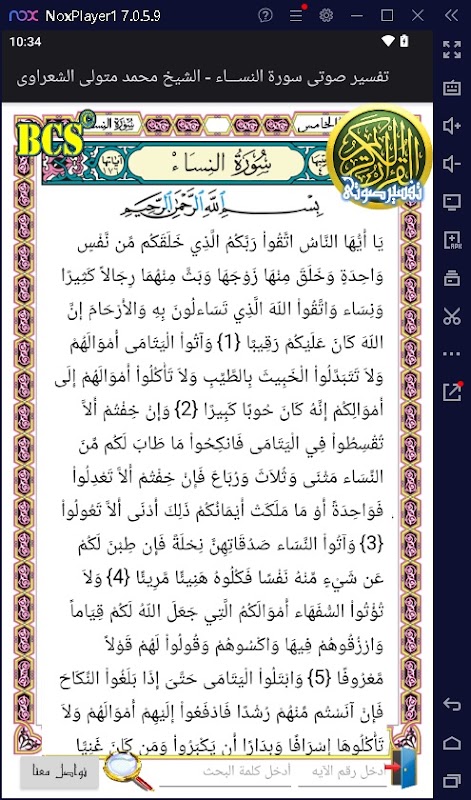 NoxPlayer1 7.0.5.9
10:34
تفسير صوتى سورة النســـاء - الشيخ محمد متولى الشعراوى
BCS
سُورَةُ النِسَاءْ
القرآن
تفسير صوتى
بِسْــــمِ اللَّهِ الرَّحْمَٰنِ الرَّحِيمِ
يَا أَيُّهَا النَّاسُ اتَّقُواْ رَبَّكُمُ الَّذِي خَلَقَكُم مِّن نَّفْسٍ
وَاحِدَةٍ وَخَلَقَ مِنْهَا زَوْجَهَا وَبَثَّ مِنْهُمَا رِجَالاً كَثِيرًا
وَنِسَاء وَاتَّقُواْ اللهَ الَّذِي تَسَاءلُونَ بِهِ وَالأَرْحَامَ إِنَّ
اللهَ كَانَ عَلَيْكُمْ رَقِيبًا {1} وَآتُواْ الْيَتَامَى أَمْوَالَهُمْ
وَلاَ تَتَبَدَّلُواْ الْخَبِيثَ بِالطَّيِّبِ وَلاَ تَأْكُلُواْ أَمْوَالَهُمْ إِلَى
أَمْوَالِكُمْ إِنَّهُ كَانَ حُوبًا كَبِيرًا {2} وَإِنْ خِفْتُمْ أَلاَّ
تُقْسِطُواْ فِي الْيَتَامَى فَانكِحُواْ مَا طَابَ لَكُم مِّنَ
النِّسَاء مَثْنَى وَثُلاَثَ وَرُبَاعَ فَإِنْ خِفْتُمْ أَلاَّ تَعْدِلُواْ
فَوَاحِدَةً أَوْ مَا مَلَكَتْ أَيْمَانُكُمْ ذَلِكَ أَدْنَى أَلاَّ تَعُولُواْ
{3} وَآتُواْ النِّسَاء صَدُقَاتِهِنَّ نِحْلَةً فَإِن طِبْنَ لَكُمْ
عَن شَيْءٍ مِّنْهُ نَفْسًا فَكُلُوهُ هَنِيئًا مَّرِيئًا {4} وَلاَ
تُؤْتُواْ السُّفَهَاء أَمْوَالَكُمُ الَّتِي جَعَلَ اللهُ لَكُمْ قِيَاماً
وَارْزُقُوهُمْ فِيهَا وَاكْسُوهُمْ وَقُولُواْ لَهُمْ قَوْلاً
مَّعْرُوفًا {5} وَابْتَلُواْ الْيَتَامَى حَتَّىَ إِذَا بَلَغُواْ النِّكَاحَ
فَإِنْ آنَسْتُم مِّنْهُمْ رُشْدًا فَادْفَعُواْ إِلَيْهِمْ أَمْوَالَهُمْ وَلاَ
تَأْكُلُوهَا إِسْرَافًا وَبِدَارًا أَن يَكْبَرُواْ وَمَن كَانَ غَنِيًّا
أدخل رقم الآيه
أدخل كلمة البحث
تواصل معنا